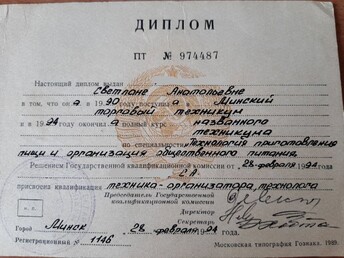 ДИПЛОМ
ПТ № 974487
Настоящий диплом выдан
Светлане Анатольевне
в том, что она в 1990 году поступила в Минский
торговый техникум
и в 1994 окончила полный курс названного
техникума
по специальности Технология приготовления
пищи и организация общественного питания
Решением Государственной квалификационной комиссии от 28 февраля 1994
присвоена квалификация техника-организатора, технолога
Председатель Государственной
квалификационной комиссии
Директор
Секретарь
Город Минск 28 февраля 1994
Регистрационный № 1146
Московская типография Гознака.